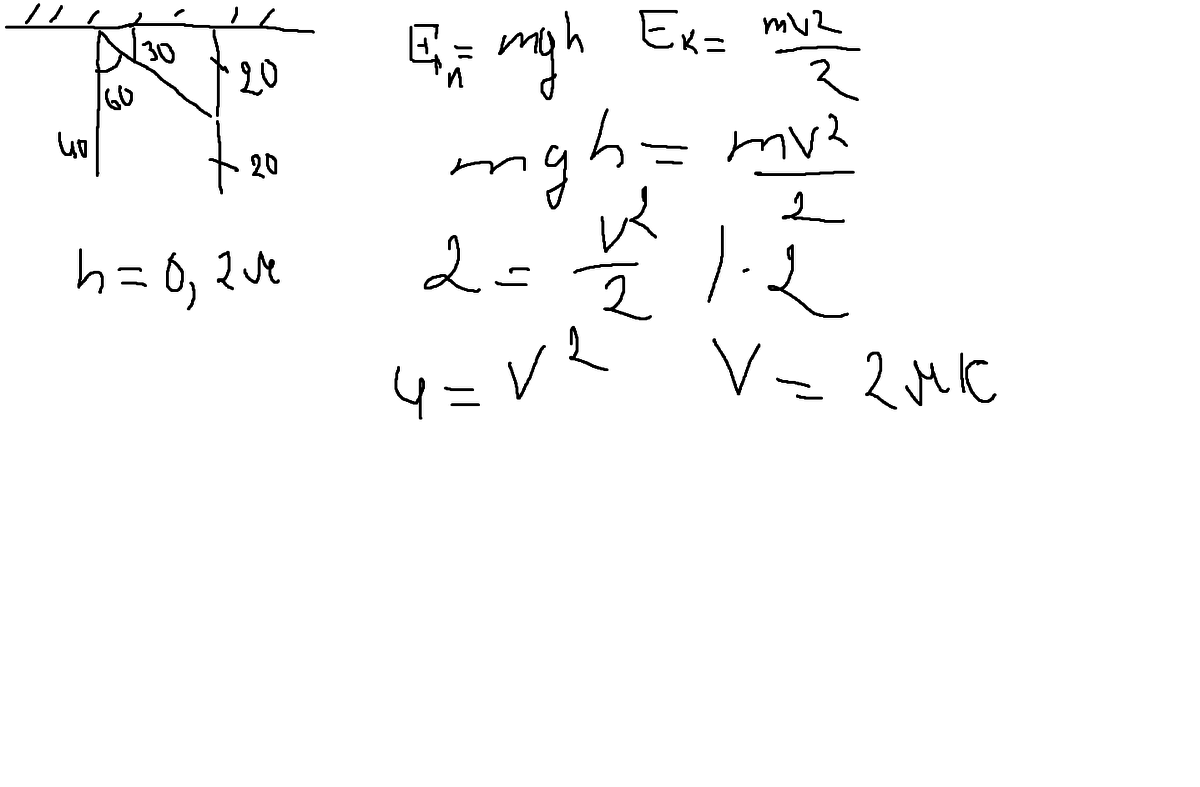 30 20
60
40 20
h = 0,2м
Eп = mgh Eк = mv²/2
mgh = mv²/2
2 = v²/2 | · 2
4 = v² V = 2 мк